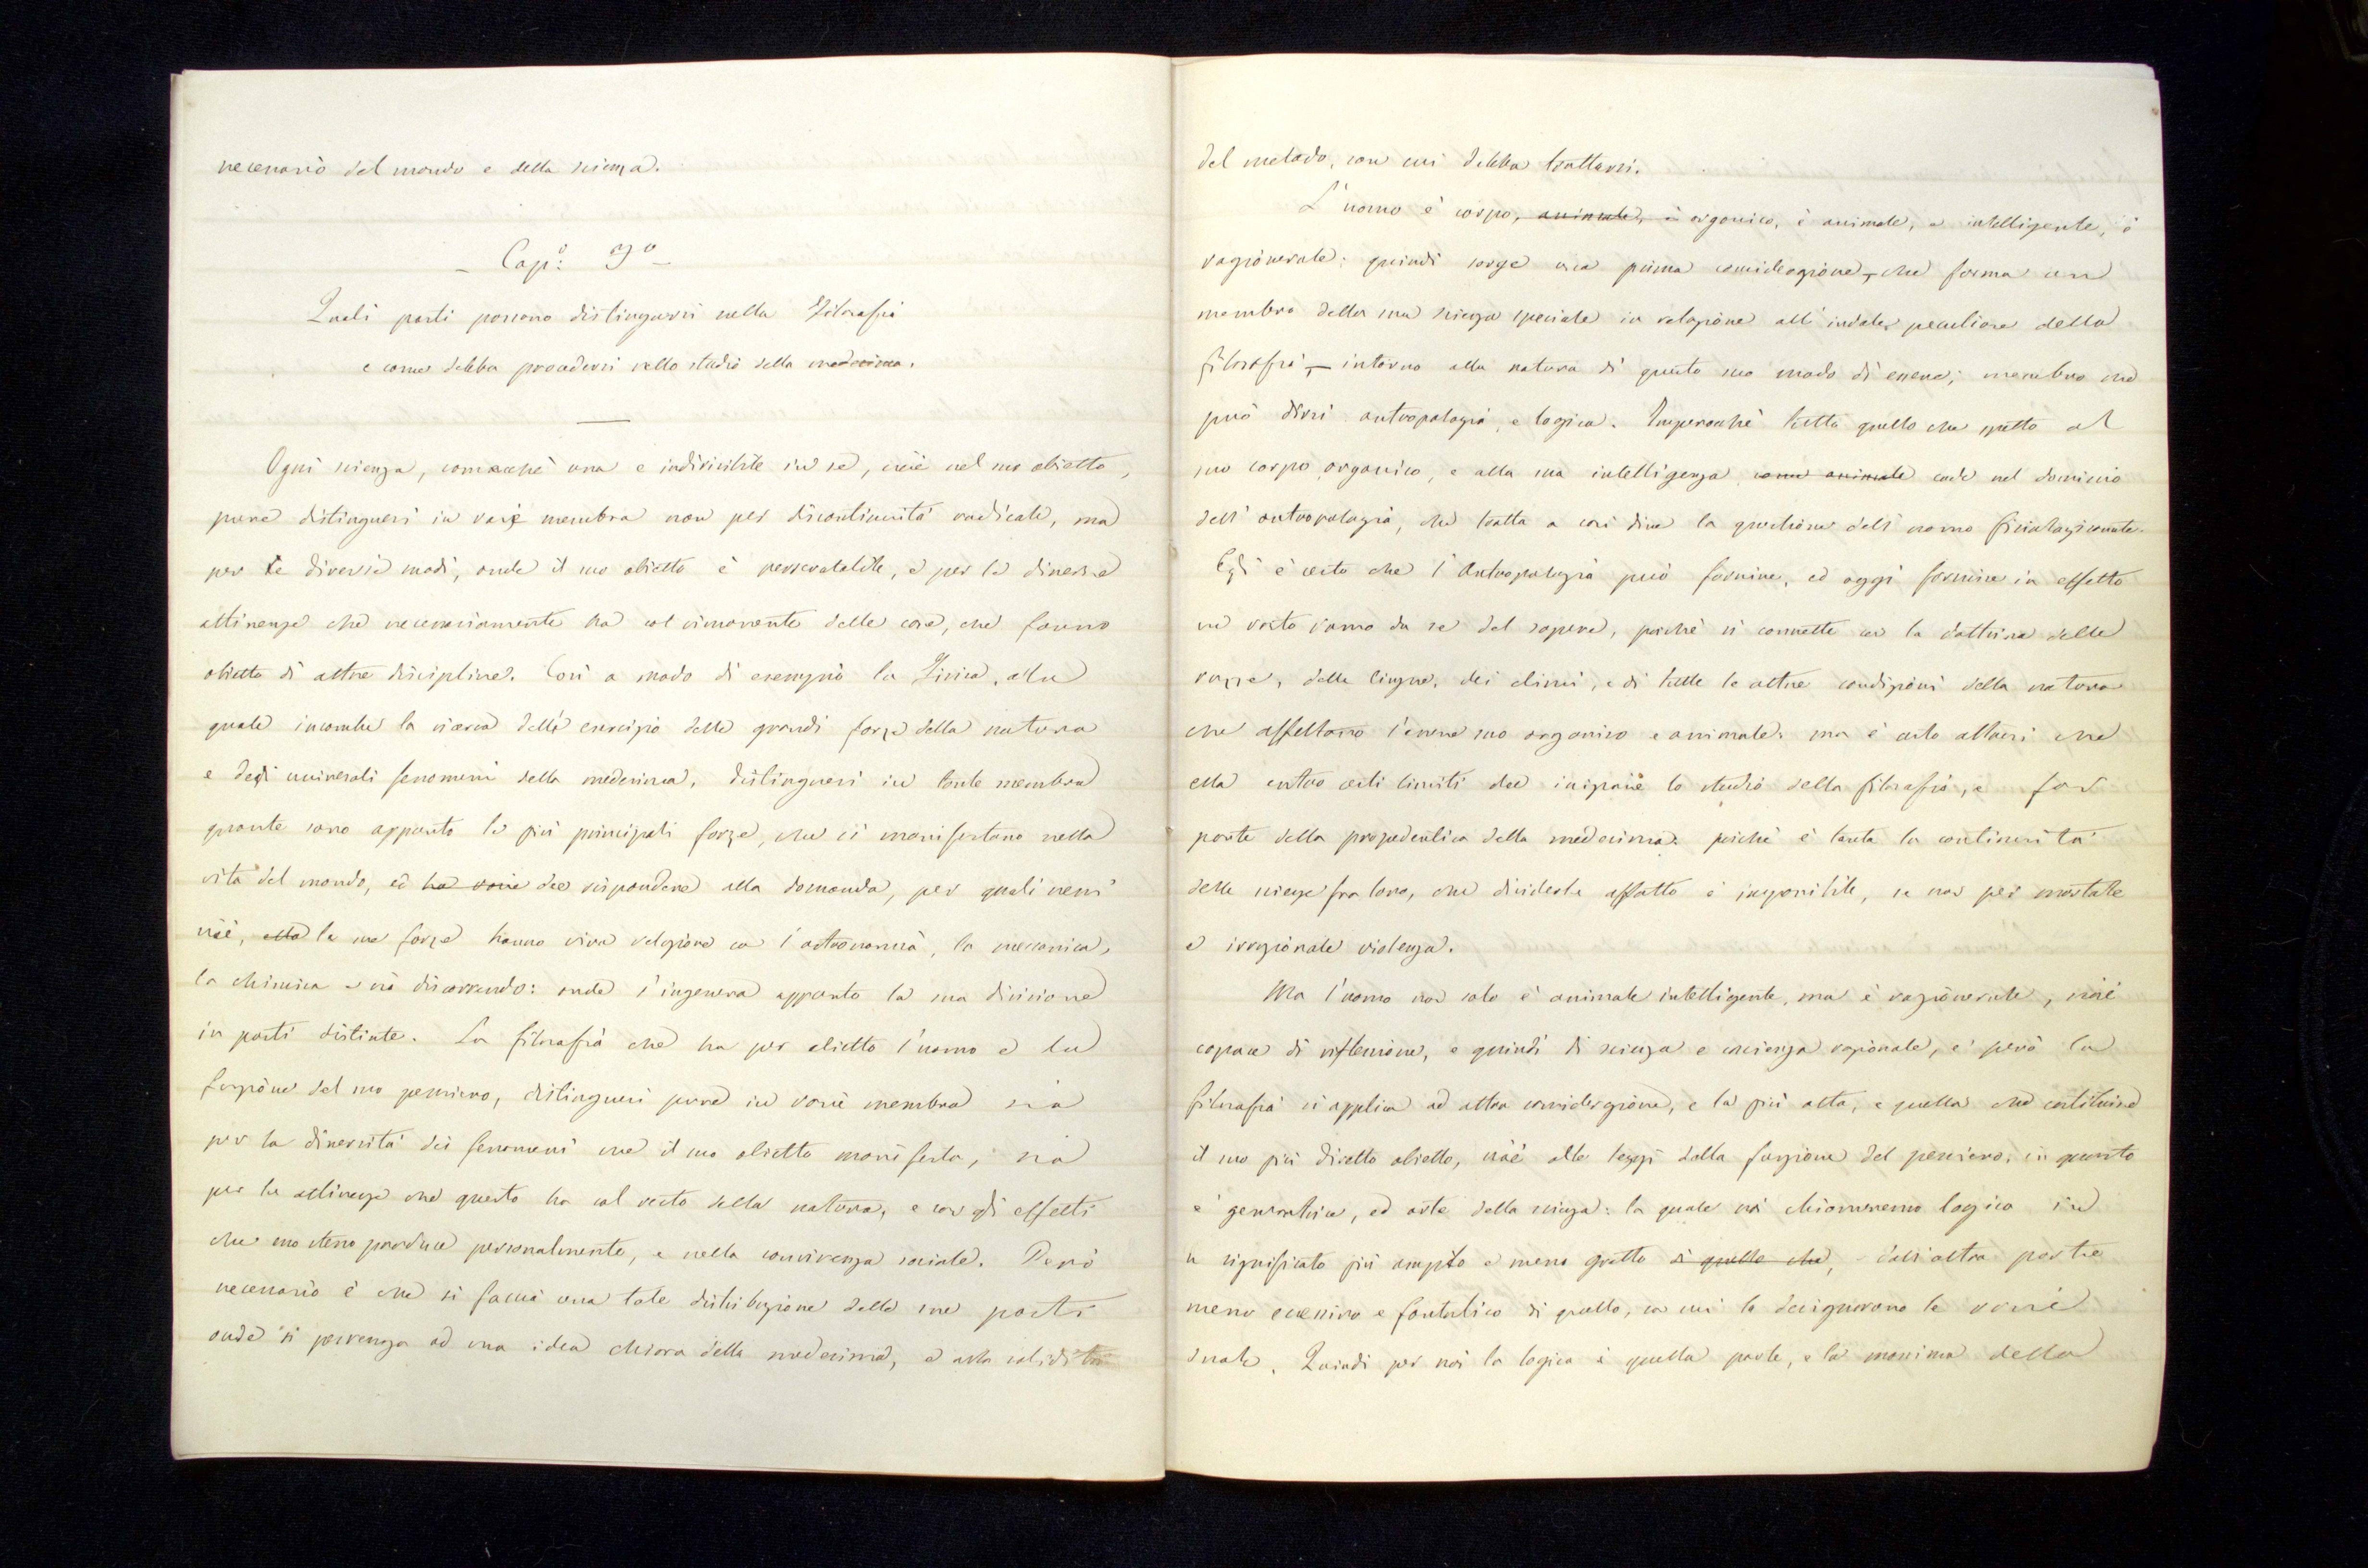 necessario del mondo e della scienza.
– Cap.º 3º –
Quali parti possono distinguersi nella Filosofia
e come debba procedersi nello studio della medesima.
Ogni scienza, comecchè una e indivisibile in se, cioè nel suo obietto,
pure distinguesi in varie membra non per discontinuità radicale, ma
per le diversi modi, onde il suo obietto è perscrutabile, e per le diverse
attinenze che necessariamente ha col rimanente delle cose, che fanno
obietto di altre discipline. Così a modo di esempio la Fisica, alla
quale incombe la ricerca dell'esercizio delle grandi forze della natura
e degli universali fenomeni della medesima, distinguesi in tante membra
quante sono appunto le più principali forze, che si manifestano nella
vita del mondo, ed ha varie dee rispondere alla domanda, per quali nessi
cioè, ella le sue forze hanno viva relazione con l'astronomia, la meccanica,
la chimica e via discorrendo: onde s'ingenera appunto la sua divisione
in parti distinte. La filosofia che ha per obietto l'uomo e la
funzione del suo pensiero, distinguesi pure in varie membra sia
per la diversità dei fenomeni che il suo obietto manifesta, sia
per le attinenze che questo ha col resto della natura, e con gli effetti
che esso stesso produce personalmente, e nella convivenza sociale. Però
necessario è che si faccia una tale distribuzione delle sue parti
onde si pervenga ad una idea chiara della medesima, e alla validità
del metodo, con cui debba trattarsi.
L'uomo è corpo, animale, è organico, è animale, è intelligente, è
ragionevole: quindi sorge una prima considerazione, che forma un
membro della sua scienza speciale in relazione all'indole peculiare della
filosofia – intorno alla natura di questo suo modo di essere; membro che
può dirsi antropologia, e logica. Imperocchè tutto quello che spetta al
suo corpo organico, e alla sua intelligenza come animale cade nel dominio
dell'antropologia, che tratta a così dire la questione dell'uomo fisiologicamente.
Egli è certo che l'Antropologia può fornire, ed oggi fornisce in effetto
un vasto ramo da se del sapere, poichè si connette con la dottrina delle
razze, delle lingue, dei climi, e di tutte le altre condizioni della natura
che affettano l'essere suo organico e animale: ma è certo altresì che
ella entro certi limiti dee iniziare lo studio della filosofia, e far
parte della propedeutica della medesima: poichè è tanta la continuità
delle scienze fra loro, che dividerle affatto è impossibile, se non per mortale
e irragionale violenza.
Ma l'uomo non solo è animale intelligente, ma è ragionevole, cioè
capace di riflessione, e quindi di scienza e coscienza razionale, e però la
filosofia si applica ad altra considerazione, e la più alta, e quella che costituisce
il suo più diretto obietto, cioè alle leggi della funzione del pensiero, in quanto
è generatrice, ed arte della scienza: la quale noi chiameremo logica in
un significato più ampio e meno gretto di quello che, dall'altra parte
meno eccessivo e fantastico di quello, con cui la designarono le varie
scuole. Quindi per noi la logica è quella parte, e la massima della